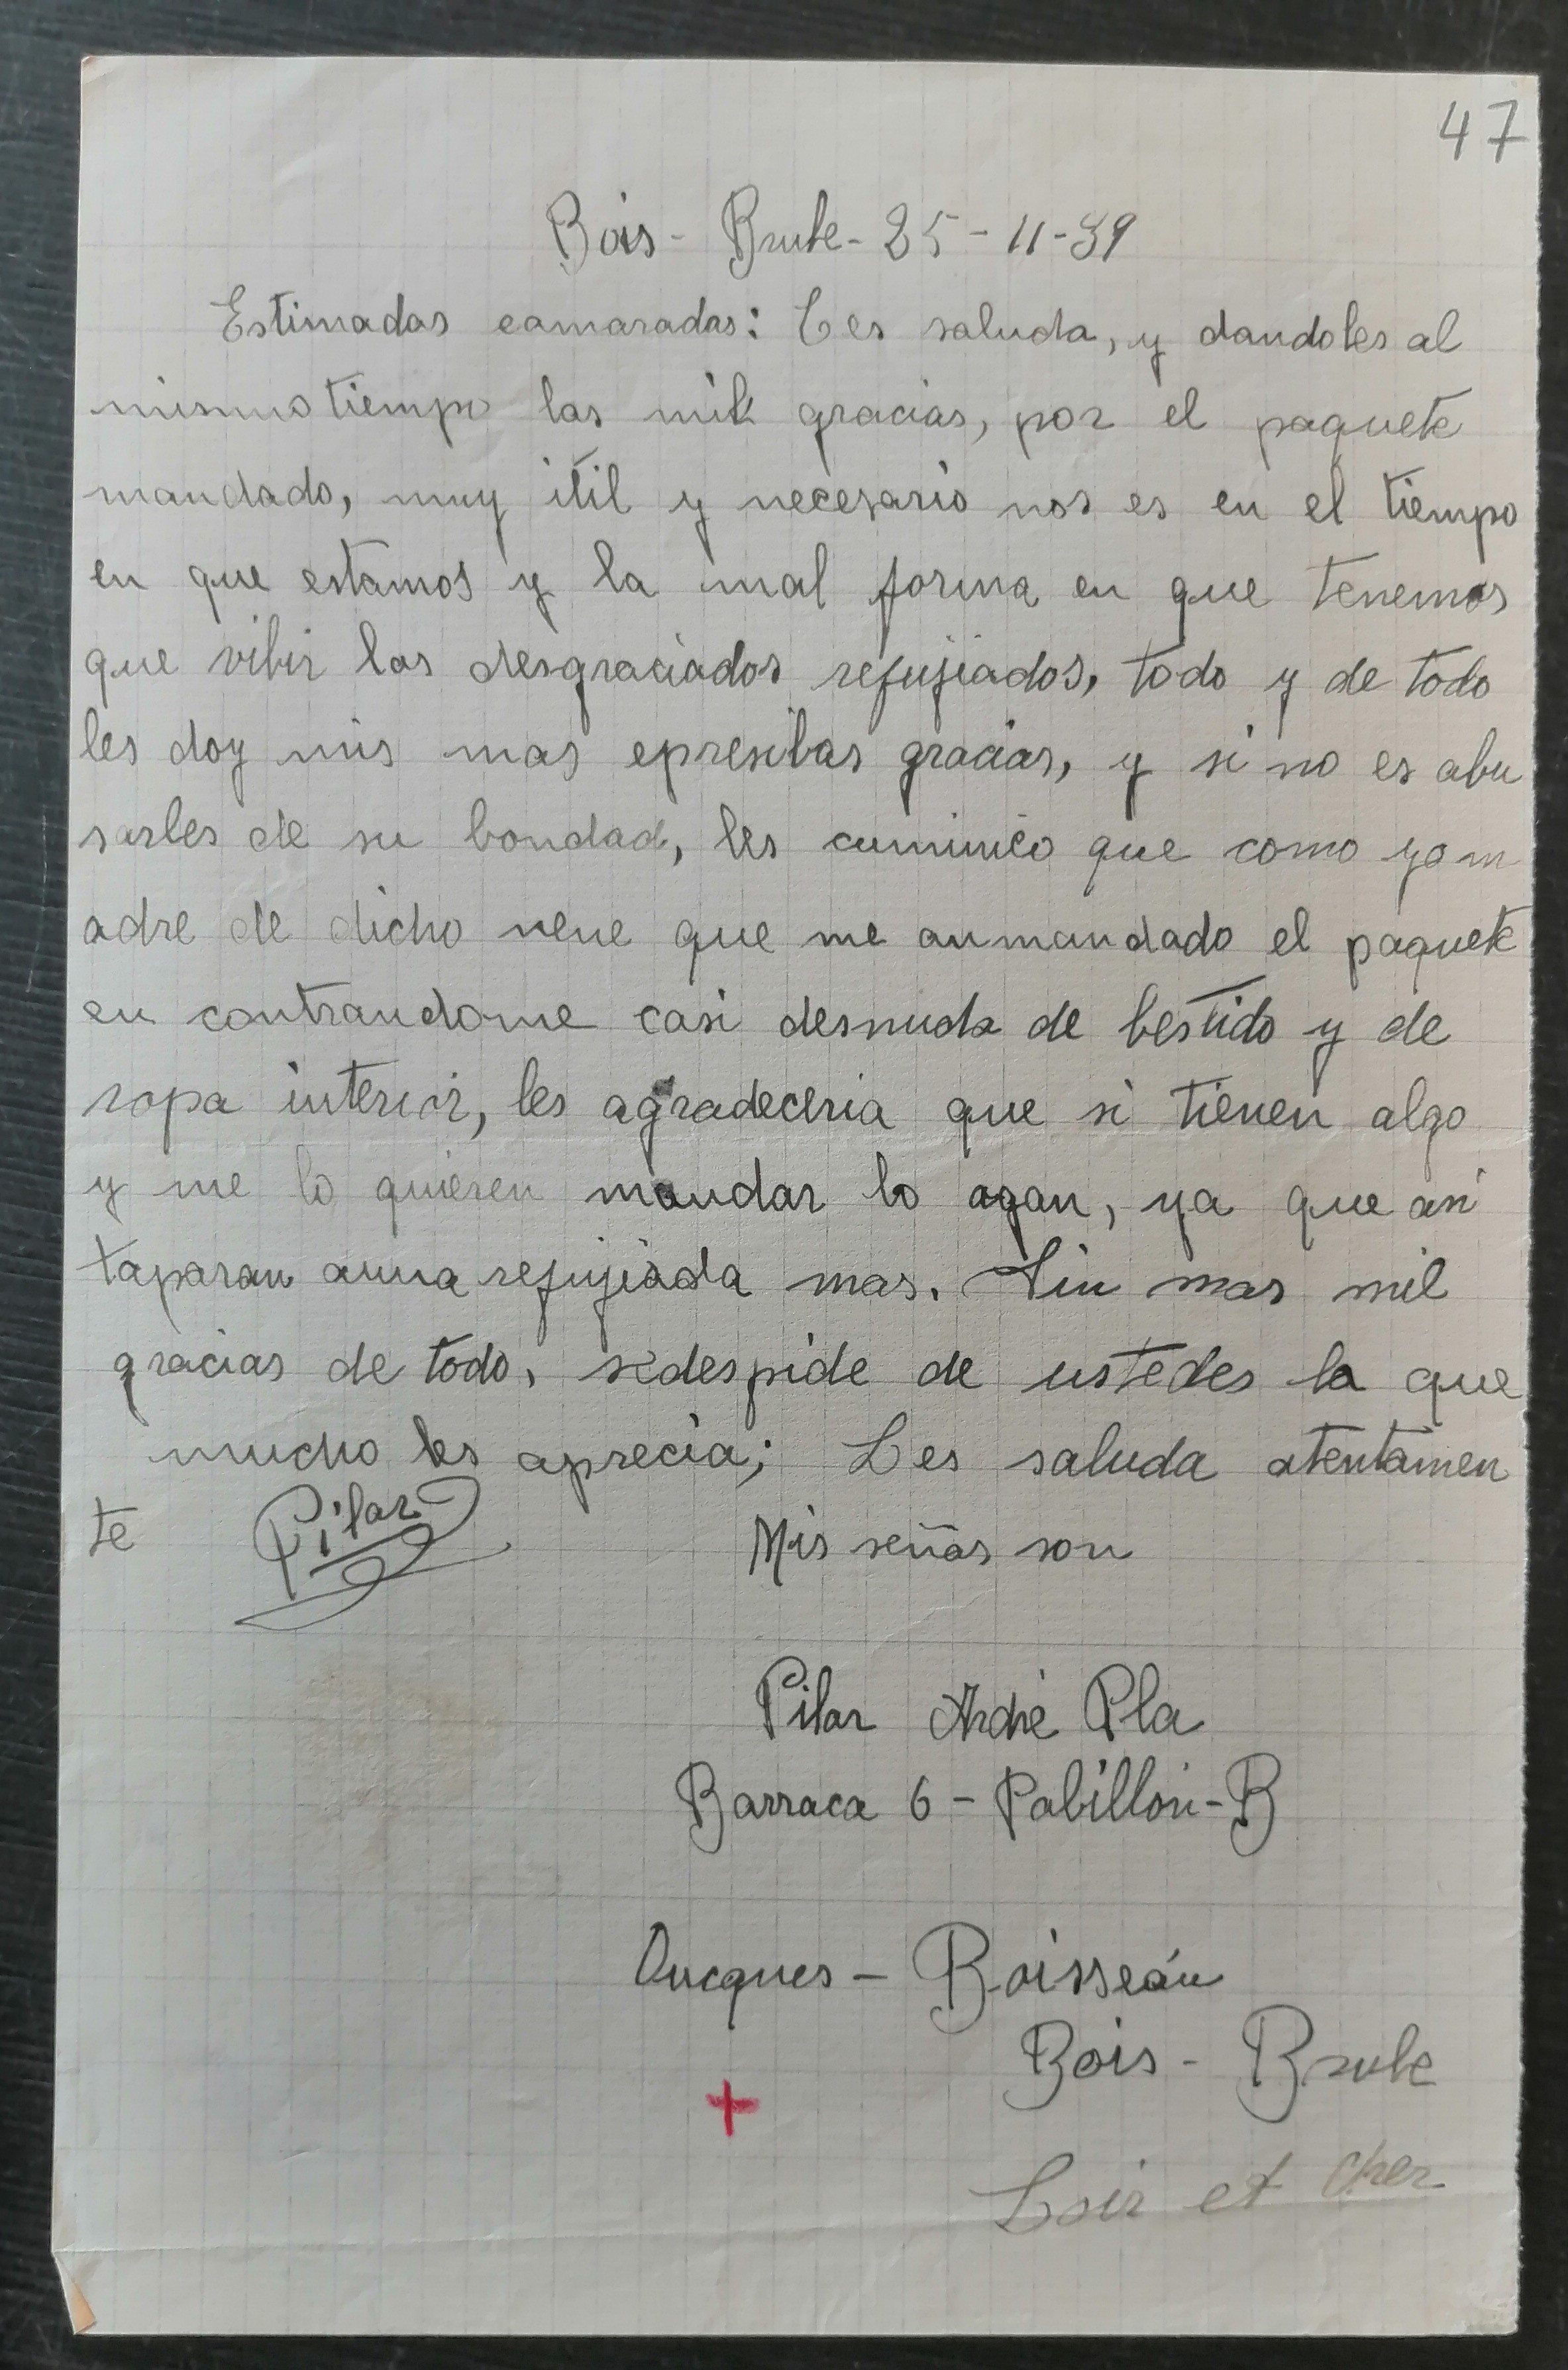 47
Bois - Brule - 25 - 11 - 39
Estimadas camaradas: Les saluda, y dandoles al
mismo tiempo las mil gracias, por el paquete
mandado, muy itil y necesario nos es en el tiempo
en que estamos y la mal forma en que tenemos
que vibir los desgraciados refujiados, todo y de todo
les doy mis mas epresibas gracias, y si no es abu
sarles de su bondad, les cuminico que como yo m
adre de dicho nene que me anmandado el paquete
en contrandome casi desnuda de bestido y de
ropa interior, les agradeceria que si tienen algo
y me lo quieren mandar lo agan, ya que asi
taparan auna refujiada mas. Sin mas mil
gracias de todo, sedespide de ustedes la que
mucho les aprecia; Les saluda atentamen
te Pilar Mis señas son
Pilar Pla
Barraca 6 - Pabillon - B
Oucques - Boisseau
Bois - Brule
+
Loir et cher